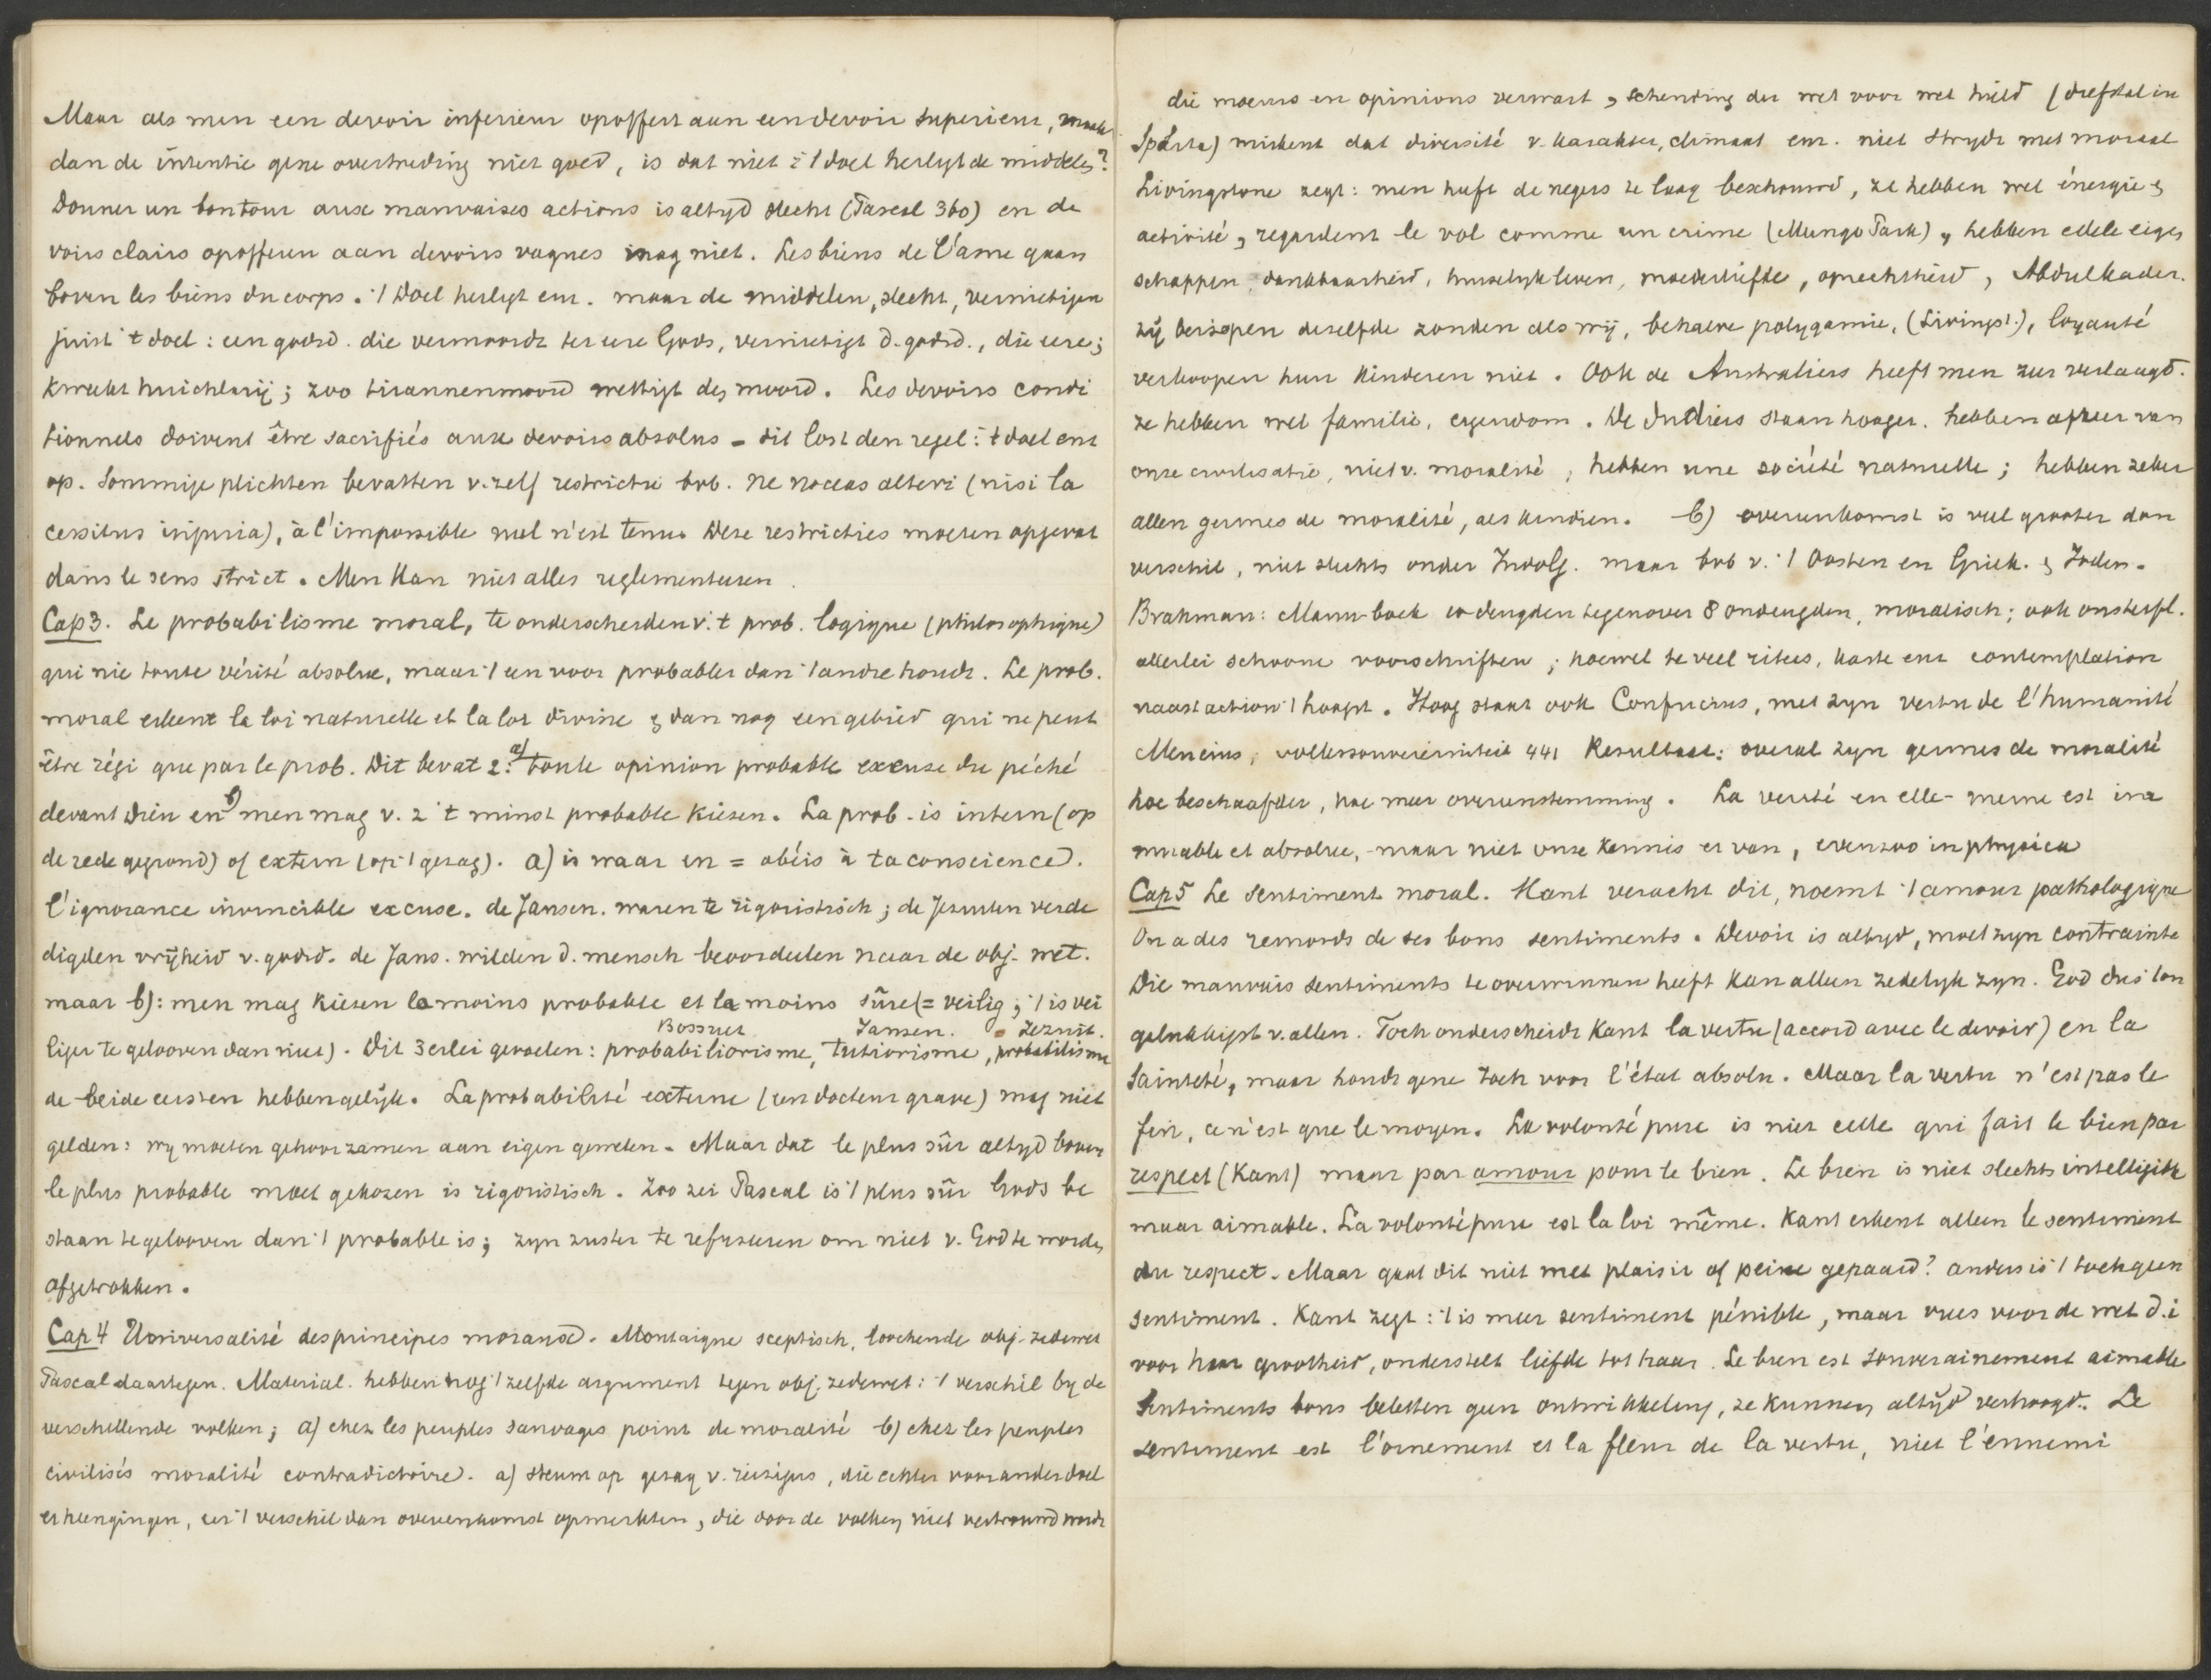 Maar als men een devoir inferieur opoffert aan een devoir superieur, maakt
dan de intentie gene overtreding niet goed, is dat niet : 't doel heiligt de middelen?
Donner un bon tour aux mauvaises actions is altyd slecht (Pascal 360) en de
voirs clairs opofferen aan devoirs vagues mag niet. Les biens de l'âme gaan
boven les biens du corps. 't Doel heiligt enz. maar de middelen, slecht, vernietigen
juist 't doel : een godsd. die vermoordt ter eere Gods, vernietigt d. godsd., die eere;
kweekt huichlarij; zoo tirannenmoord wettigt den moord. Les devoirs condi
tionnels doivent être sacrifiés aux devoirs absolus - dit lost den regel : 't doel enz
op. Sommige plichten bevatten v. zelf restrictie bvb. ne noceas alteri (nisi la
cessitus injuria), à l'impossible nul n'est tenu. Deze restricties moeten opgevat
dans le sens strict. Men kan niet alles reglementeeren.
Cap 3. Le probabilisme moral, te onderscheiden v. 't prob. logique (philosophique)
qui nie toute vérité absolue, maar 't een voor probabler dan 't andre houdt. Le prob.
moral erkent la loi naturelle et la loi divine & dan nog een gebied qui ne peut
être régi que par le prob. Dit bevat 2: a) toute opinion probable excuse du péché
devant Dieu en b) men mag v. 2 't minst probable kiezen. La prob. is intern (op
de rede gegrond) of extern (op 't gezag). a) is waar en = obéis à ta conscience.
l'ignorance invincible excuse. de Jansen. waren te rigoristisch; de Jezuiten verde
digden vrijheid v. godsd. de Jans. wilden d. mensch beoordeelen naar de obj. wet.
maar b): men mag kiezen le moins probable et le moins sûre (= veilig; 't is vei
liger te gelooven dan niet). Dit 3erlei gevoelen: probabiliorisme, tutiorisme, probabilisme
Bossuet Jansen. Jezuit.
de beide eersten hebben gelijk. La probabilité externe (een docteur grave) mag niet
gelden: wy moeten gehoorzamen aan eigen geweten. Maar dat le plus sûr altyd boven
le plus probable moet gekozen is rigoristisch. Zoo zei Pascal is 't plus sûr Gods be
staan te gelooven dan 't probable is; zyn zuster te refuseeren om niet v. God te worden
afgetrokken.
Cap 4 Universalité des principes moraux. Montaigne sceptisch, loochende obj. zedewet
Pascal daartegen. Material. hebben nog 't zelfde argument tegen obj. zedewet: 't verschil by de
verschillende volken; a) chez les peuples sauvages point de moralité b) chez les peuples
civilisés moralité contradictoire. a) steunt op gezag v. reizigers, die echter voor ander doel
er heengingen, eer 't verschil dan overeenkomst opmerkten, die door de volken niet vertrouwd werdn
die moeurs en opinions verwart, schending der wet voor wet hield (diefstal in
Sparta) miskent dat diversité v. karakter, climaat enz. niet strydt met moraal
Livingstone zegt: men heeft de negers te laag beschouwd, ze hebben wel énergie &
activité, regardent le vol comme un crime (Mungo Park), hebben edele eigen
schappen, dankbaarheid, huiselyk leven, moederliefde, oprechtheid, Abdulkader.
zij beïsopen dezelfde zonden als wij, behalve polygamie, (Livingst.), loyauté
verkoopen hun kinderen niet. Ook de Australiers heeft men zeer verlaagd.
ze hebben wel familie, eigendom. De Indiers staan hooger. hebben afkeer van
onze civilisatie, niet v. moralité; hebben une société naturelle; hebben zeker
allen germes de moralité, als kindren. b) overeenkomst is veel grooter dan
verschil, niet slechts onder Involg. maar bvb v. 't Oosten en Griek. & Joden.
Brahman: Manu-boek 10 deugden tegenover 8 ondeugden, moralisch; ook onsterfl.
allerlei schoone voorschriften; hoewel te veel rites, kaste enz contemplation
naast action 't hoogst. Hoog staat ook Confucius, met zyn vertu de l'humanité
Mencius, volkssouvereiniteit 441 Resultaat: overal zyn germes de moralité
hoe beschaafder, hoe meer overeenstemming. La verité en elle-meme est im
muable et absolue, maar niet onze kennis er van, evenzoo in physica
Cap 5 Le sentiment moral. Kant veracht dit, noemt 't amour pathologique
On a des remords de ses bons sentiments. Devoir is altyd, moet zyn contrainte
Die mauvais sentiments te overwinnen heeft kan alleen zedelyk zyn. God dus ton
gelukkigst v. allen. Toch onderscheidt Kant la vertu (accord avec le devoir) en la
sainteté, maar houdt gene toch voor l'état absolu. Maar la vertu n'est pas le
fin, ce n'est que le moyen. La volonté pure is niet celle qui fait le bien par
respect (Kant) maar par amour pour le bien. Le bien is niet slechts intelligible
maar aimable. La volonté pure est la loi même. Kant erkent alleen le sentiment
du respect. Maar gaat dit niet met plaisir of peine gepaard? anders is 't toch geen
sentiment. Kant zegt: 't is meer sentiment pénible, maar vrees voor de wet d.i
voor haar grootheid, onderstelt liefde tot haar. Le bien est souverainement aimable
Sentiments bons beletten geen ontwikkeling, ze kunnen altyd verhoogd. Le
sentiment est l'ornement et la fleur de la vertu, niet l'ennemi